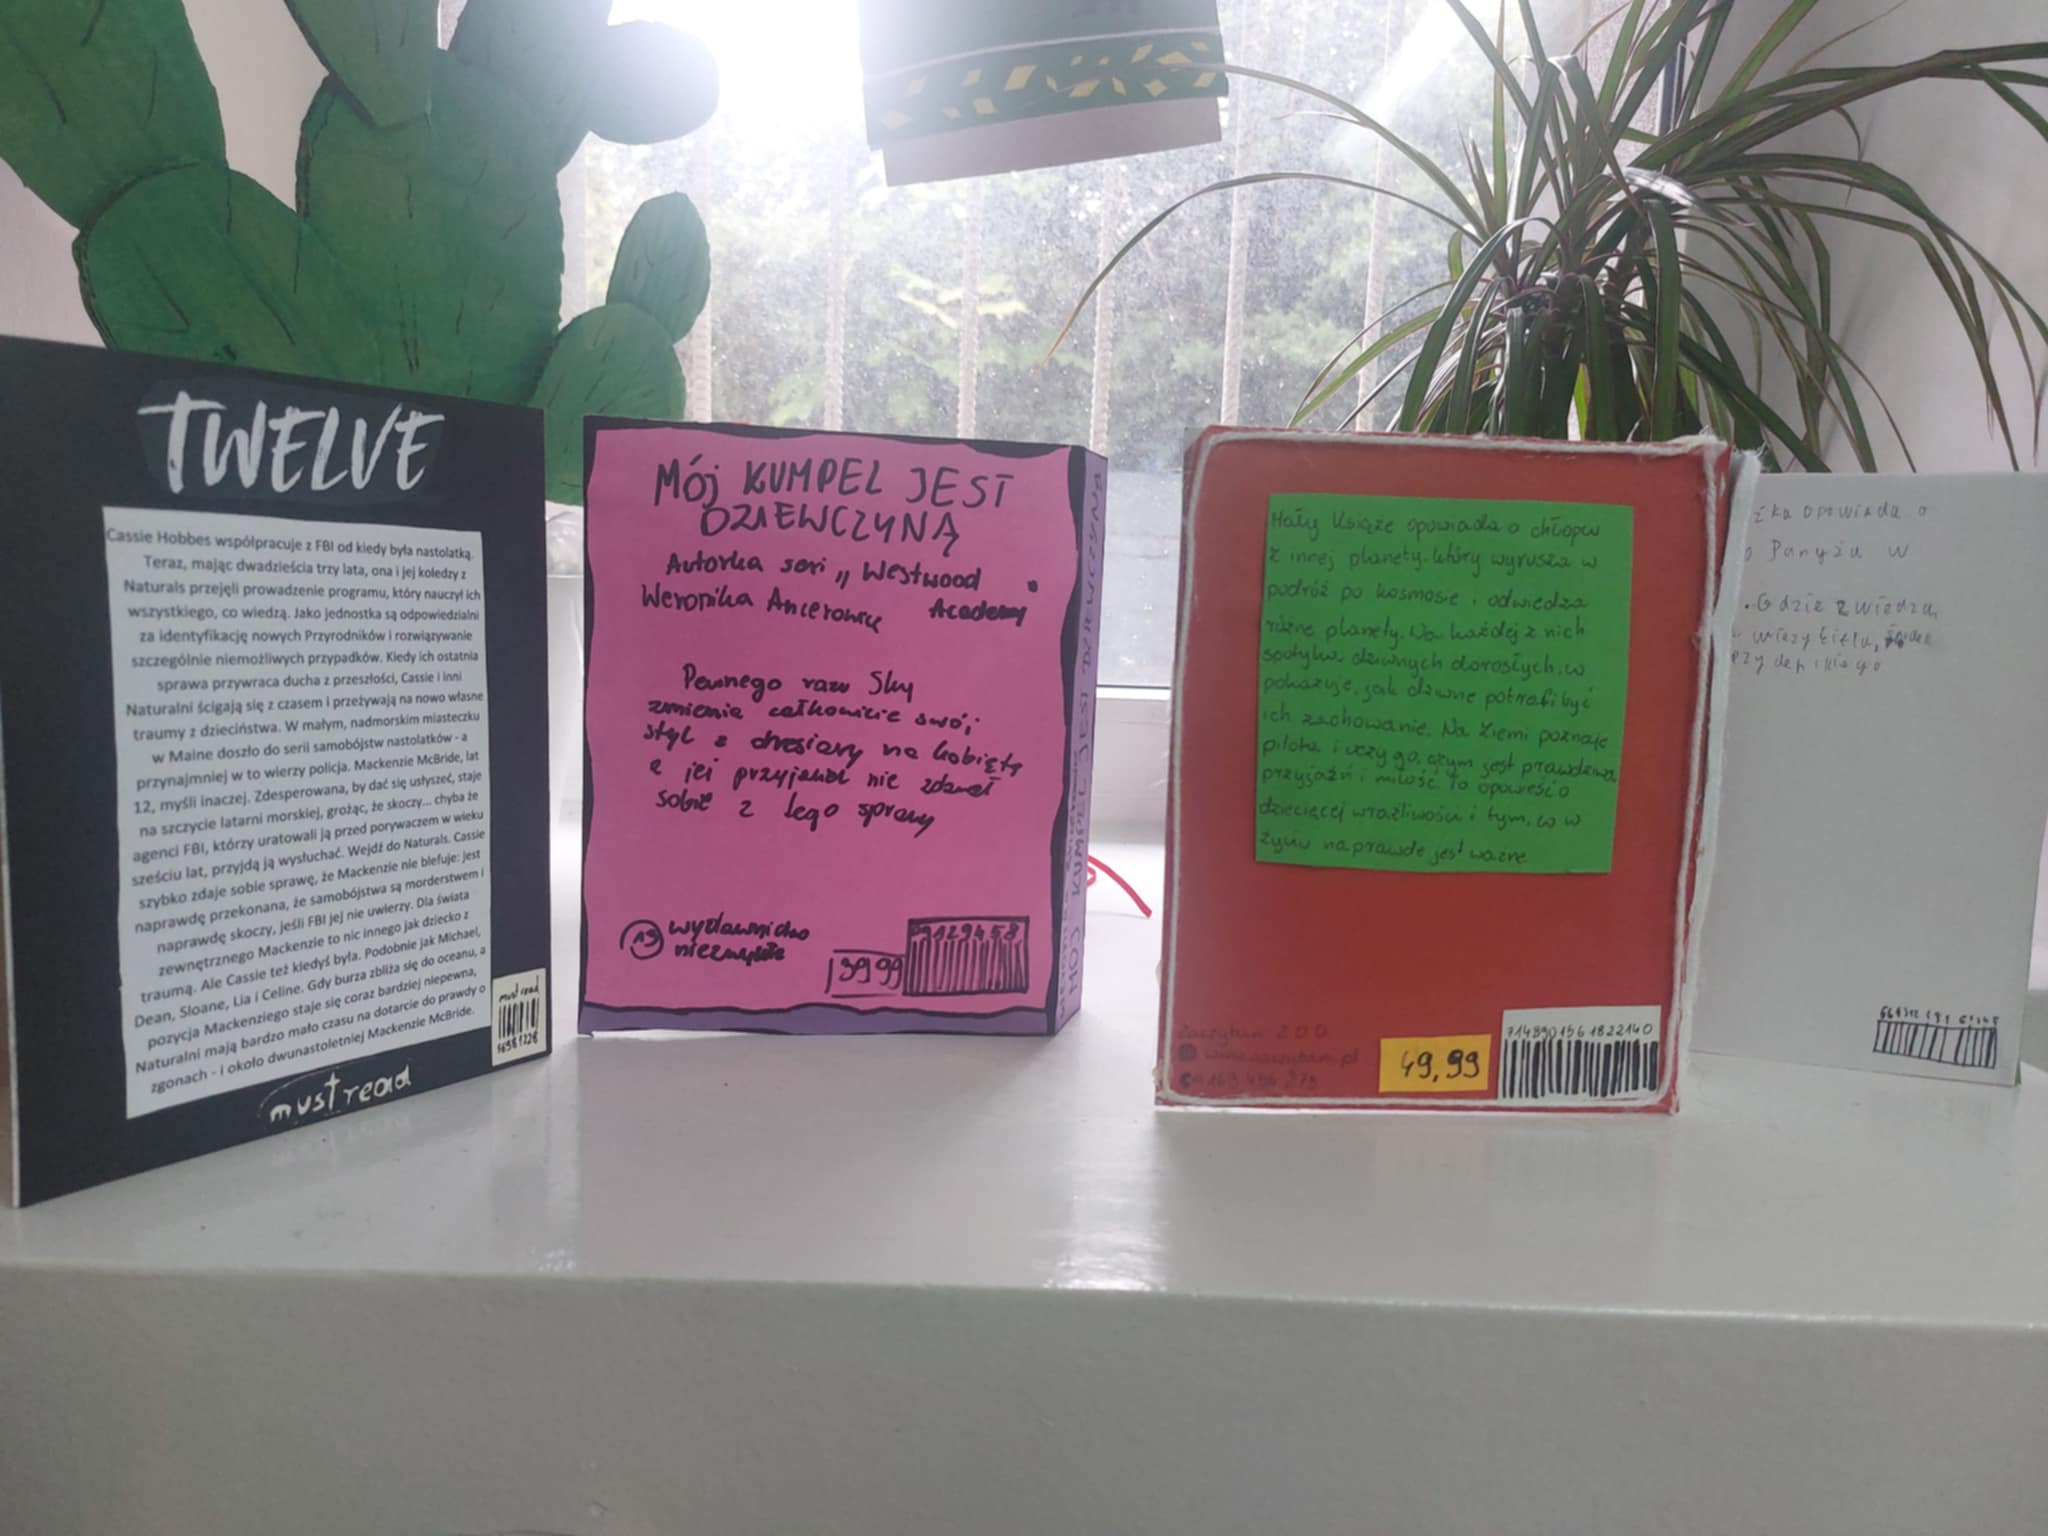 TWELVE
Cassie Hobbes współpracuje z FBI od kiedy była nastolatką.
Teraz, mając dwadzieścia trzy lata, ona i jej koledzy z
Naturals przejęli prowadzenie programu, który nauczył ich
wszystkiego, co wiedzą. Jako jednostka są odpowiedzialni
za identyfikację nowych Przyrodników i rozwiązywanie
szczególnie niemożliwych przypadków. Kiedy ich ostatnia
sprawa przywraca ducha z przeszłości, Cassie i inni
Naturalni ścigają się z czasem i przeżywają na nowo własne
traumy z dzieciństwa. W małym, nadmorskim miasteczku
w Maine doszło do serii samobójstw nastolatków - a
przynajmniej w to wierzy policja. Mackenzie McBride, lat
12, myśli inaczej. Zdesperowana, by dać się usłyszeć, staje
na szczycie latarni morskiej, grożąc, że skoczy... chyba że
agenci FBI, którzy uratowali ją przed porywaczem w wieku
sześciu lat, przyjdą ją wysłuchać. Wejdź do Naturals. Cassie
szybko zdaje sobie sprawę, że Mackenzie nie blefuje: jest
naprawdę przekonana, że samobójstwa są morderstwem i
naprawdę skoczy, jeśli FBI jej nie uwierzy. Dla świata
zewnętrznego Mackenzie to nic innego jak dziecko z
traumą. Ale Cassie też kiedyś była. Podobnie jak Michael,
Dean, Sloane, Lia i Celine. Gdy burza zbliża się do oceanu, a
pozycja Mackenziego staje się coraz bardziej niepewna,
Naturalni mają bardzo mało czasu na dotarcie do prawdy o
zgonach - i około dwunastoletniej Mackenzie McBride.
must read
must read
MÓJ KUMPEL JEST
DZIEWCZYNĄ
Autorka seri „ Westwood
Weronika Ancerowicz Academy
Pewnego razu Sky
zmienia całkowicie swój
styl z dresiary na kobietę
a jej przyjaciel nie zdawał
sobie z tego sprawy
19 wydawnictwo
niezwykłe
39 99
9129458
MÓJ KUMPEL JEST DZIEWCZYNĄ
Mały Książe opowiada o chłopcu
z innej planety, który wyrusza w
podróż po kosmosie i odwiedza
różne planety. Na każdej z nich
spotyka dziwnych dorosłych, co
pokazuje, jak dziwne potrafi być
ich zachowanie. Na Ziemi poznaje
pilota i uczy go, czym jest prawdziwa
przyjaźń i miłość. To opowieść o
dziecięcej wrażliwości i tym, co w
życiu naprawdę jest ważne
zaczytam z o.o
www.zaczytam.pl
49,99
714890156 1822140
żka opowiada o
o Paryżu w
Gdzie zwiedza
wieży Eifla,